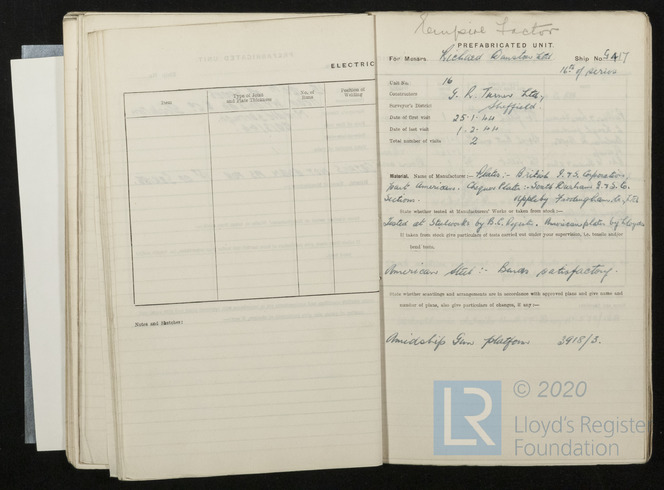 PREFABRICATED UNIT
ELECTRIC
Item
Type of Joint
and Plate Thickness
No. of
Runs
Position of
Welding
Notes and Sketches:
Empire Factor
PREFABRICATED UNIT.
For Messrs. Richard Dunston Ltd. Ship No.
16th of series
Unit No. 16
Constructors G. R. Turner Ltd.,
Surveyor's District Sheffield.
Date of first visit 25-1-44
Date of last visit 1-2-44
Total number of visits 2
Material. Name of Manufacturer:— Plates:- British I. & S. Corporation,
part American. Plate:- South Durham S. & I. Co.
Sections. Appleby Frodingham Co. Ltd
State whether tested at Manufacturers' Works or taken from stock:—
Tested at Steelworks by B.C. American plates by Lloyds
If taken from stock give particulars of tests carried out under your supervision, i.e. tensile and/or
bend tests.
American Steel:- Bends satisfactory.
State whether scantlings and arrangements are in accordance with approved plans and give name and
number of plans, also give particulars of changes, if any:—
Amidship Gun platform 2918/3.
LR
© 2020
Lloyd's Register
Foundation